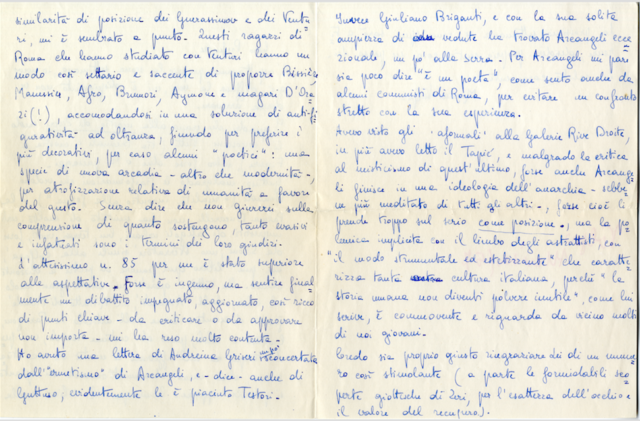 similarità di posizione dei Guerassimov e dei Ventu=
ri, mi è sembrato a punto. Questi ragazzi di
Roma che hanno studiato con Venturi hanno un
modo così settario e saccente di proporre Bissière,
Manessier, Afro, Brunori, Aymone e magari D'Ora=
zi(!), accomodandosi in una soluzione di anti=fi
guratività ad oltranza, finendo per preferire i
più decorativi, per caso alcuni "poetici": una
specie di nuova arcadia - altro che modernità -
per atrofizzazione relativa di umanità a favore
del gusto. Senza dire che non giurerei sulla
comprensione di quanto sostengono, tanto evasivi
e infarciti sono i termini dei loro giudizi.
L'attesissimo n. 85 per me è stato superiore
alle aspettative. Forse è ingenuo, ma sentire final=
mente un dibattito impegnato, aggiornato, così ricco
di punti chiave - da criticare o da approvare
non importa - mi ha reso molto contenta -
Ho avuto una lettera di Andreina Griseri un po' sconcertata
dall'"ermetismo" di Arcangeli, e - dice - anche di
Guttuso; evidentemente le è piaciuto Testori.
Invece Giuliano Briganti, e con la sua solita
ampiezza di vedute ha trovato Arcangeli ecce
zionale, un po' alla serra. Per Arcangeli mi par
sia poco dire "è un poeta", come sento anche da
alcuni comunisti di Roma, per evitare un confronto
stretto con la sua esperienza.
Avevo visto gli 'aformali' alla Galerie Rive Droite,
in più avevo letto il Tapié, e malgrado la critica
al misticismo di quest'ultimo, forse anche Arcange=
li finisce in una ideologia dell'anarchia - sebbe=
ne più meditato di tutti gli altri -, forse cioè li
prende troppo sul serio come posizione, ma la po
lemica implicita con il limbo degli astrattisti, con
"il modo strumentale ed estetizzante" che caratte
rizza tanta cultura italiana, perché "la
storia umana non diventi polvere inutile" come lui
scrive, è commovente e riguarda da vicino molti
di noi giovani.
Credo sia proprio giusto ringraziare lei di un nume=
ro così stimolante (a parte le formidabili sco
perte giottesche di Zeri, per l'esattezza dell'occhio e
il valore del recupero).